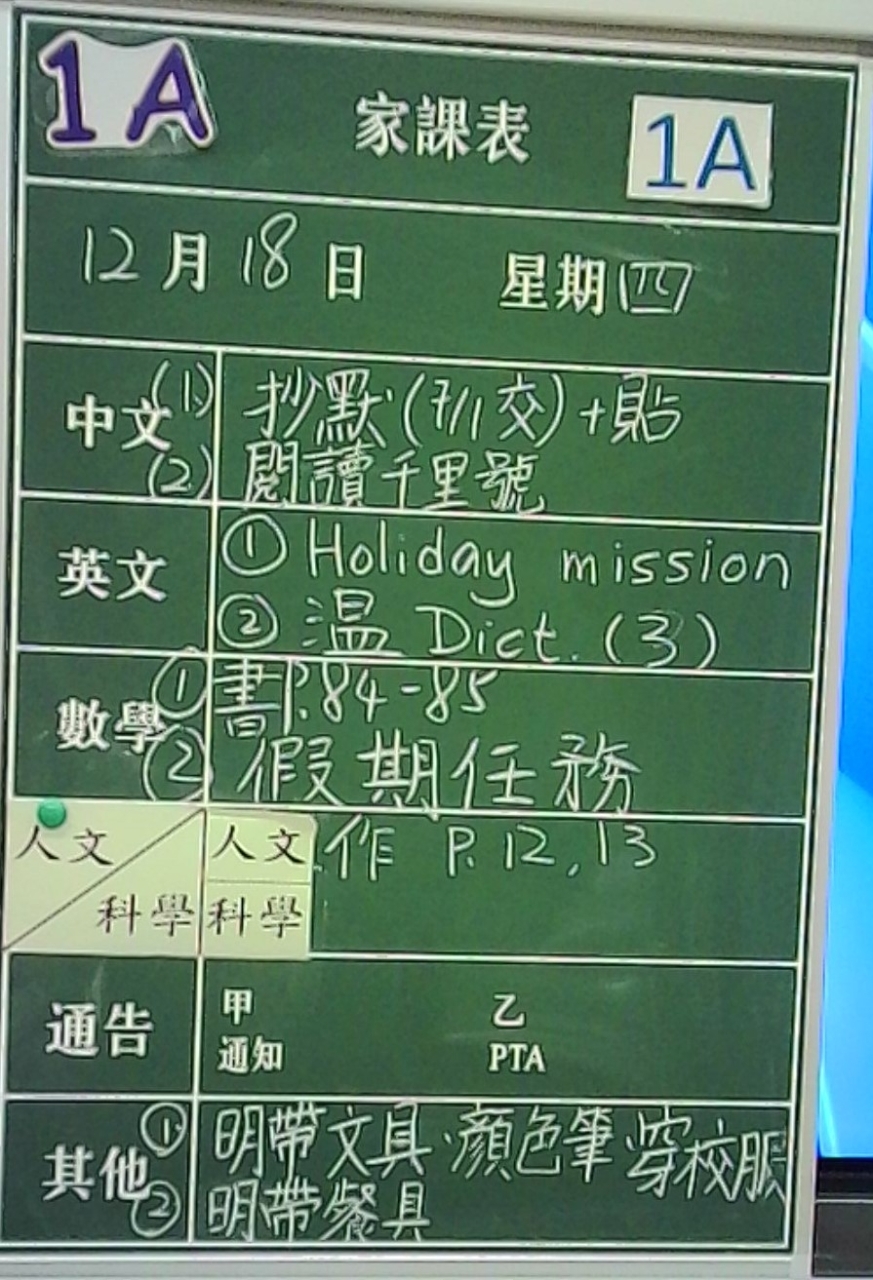 1A 家課表 1A
12月18日 星期四
中文 (1) 抄默(7/1交)+貼
(2) 閱讀千里號
英文 ① Holiday mission
② 溫 Dict. (3)
數學 ① 書P.84-85
② 假期任務
人文 人文 作 P.12,13
科學 科學
通告 甲 乙
通知 PTA
其他 ① 明帶文具·顏色筆·穿校服
② 明帶餐具